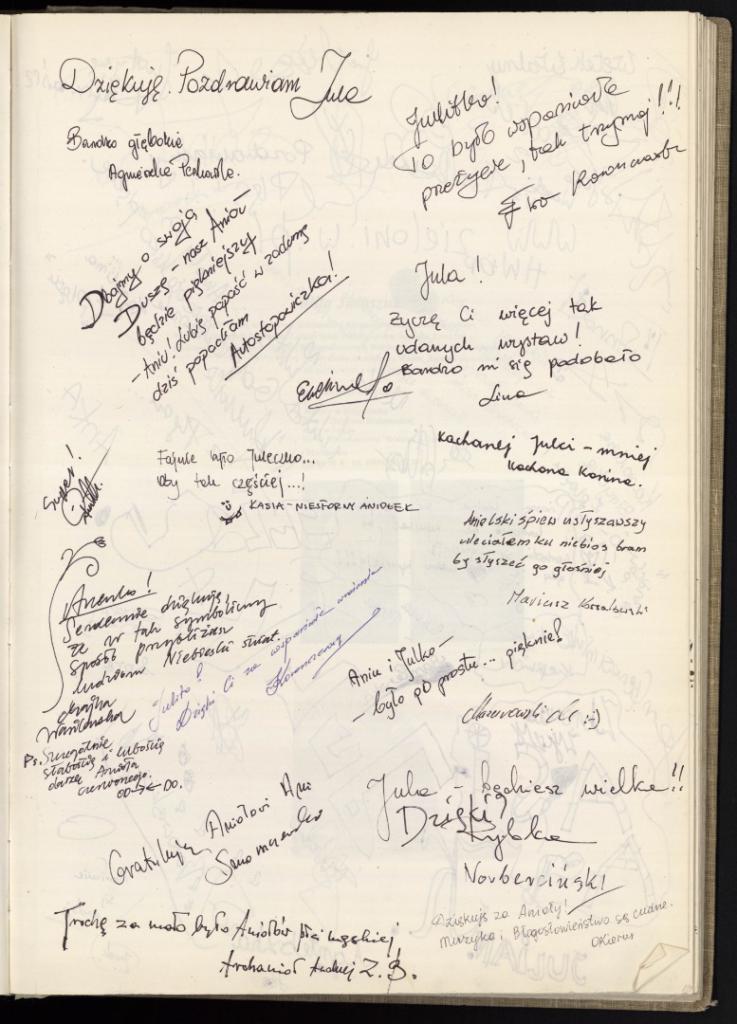 Dziękuję. Pozdrawiam Jula
Bardzo głębokie
Agnieszka
Julitko!
To było wspaniałe
przeżycie, tak trzymaj!!!
Ewa
Dbajmy o swoją
Duszę - nasz Anioł
będzie piękniejszy
- Aniu! Lubię popaść w zadumę
dziś popadłam
Autostopowiczka!
Jula!
Życzę Ci więcej tak
udanych wystaw!
Bardzo mi się podobało
Lina
Kochanej Julci - mniej
kochana Karina.
Super!
Fajnie było Juleczko...
Oby tak częściej...!
KASIA - NIESFORNY ANIOŁEK
Anielski śpiew usłyszawszy
wleciałem ku niebios bram
by słyszeć go głośniej
Mariusz
Anenko!
Serdecznie dziękuję,
że w tak symboliczny
sposób przybliżasz
ludziom Niebieski świat.
Ps. Szczególnie
słabością i lubością
darzę Anioła
czerwonego.
Julito!
Dzięki Ci za wspaniałe wrażenia
Aniu i Julko -
- było po prostu... pięknie!
:-)
Gratuluję Aniołowi Ani
Jula - będziesz wielka!!
Dzięki!
Rybka
Norberciński
Dziękuję za Anioły!
Muzyka i Błogosławieństwo są cudne.
OKierus
Trochę za mało było Aniołów płci męskiej
Archanioł Andrzej Z. B.